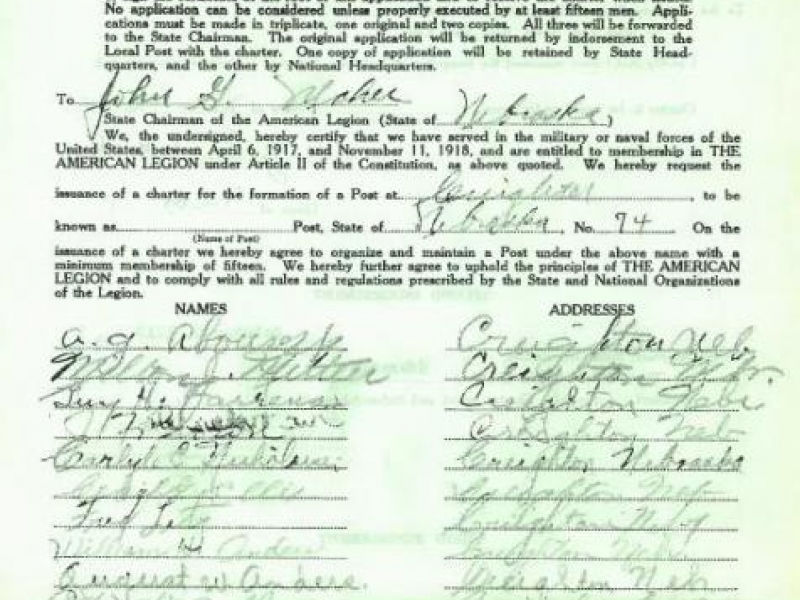 No application can be considered unless properly executed by at least fifteen men. Appli-
cations must be made in triplicate, one original and two copies. All three will be forwarded
to the State Chairman. The original application will be returned by indorsement to the
Local Post with the charter. One copy of application will be retained by State Head-
quarters, and the other by National Headquarters.
To John G. Maher
State Chairman of the American Legion (State of Nebraska)
We, the undersigned, hereby certify that we have served in the military or naval forces of the
United States, between April 6, 1917, and November 11, 1918, and are entitled to membership in THE
AMERICAN LEGION under Article II of the Constitution, as above quoted. We hereby request the
issuance of a charter for the formation of a Post at Creighton, to be
known as Post, State of Nebraska, No. 74 On the
(Name of Post)
issuance of a charter we hereby agree to organize and maintain a Post under the above name with a
minimum membership of fifteen. We hereby further agree to uphold the principles of THE AMERICAN
LEGION and to comply with all rules and regulations prescribed by the State and National Organizations
of the Legion.
NAMES ADDRESSES
Creighton Neb.
Creighton Nebr.
Guy Creighton Nebr
Creighton Neb
Creighton Nebraska
Creighton Neb
Fred Creighton Neb
William H Creighton Nebr
August W. Creighton Neb